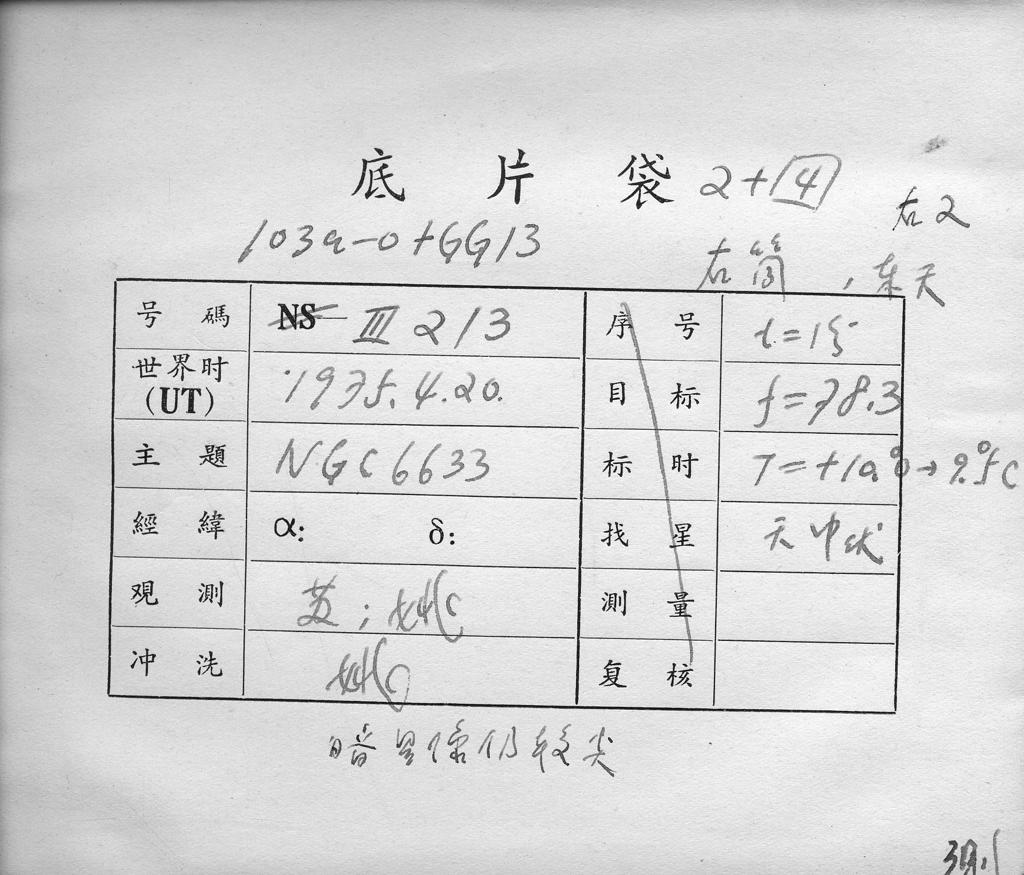 底片袋 2+4
右2
103a-O+GG13
右筒，东天
号碼 NS III 213 序号 t=15
世界时(UT) 1975.4.20. 目标 f=78.3
主題 NGC6633 标时 T=+10.°0→9.°5C
經緯 α: δ: 找星
观测 苏; 姚 測量
冲洗 姚 复核
暗星像仍较尖
测